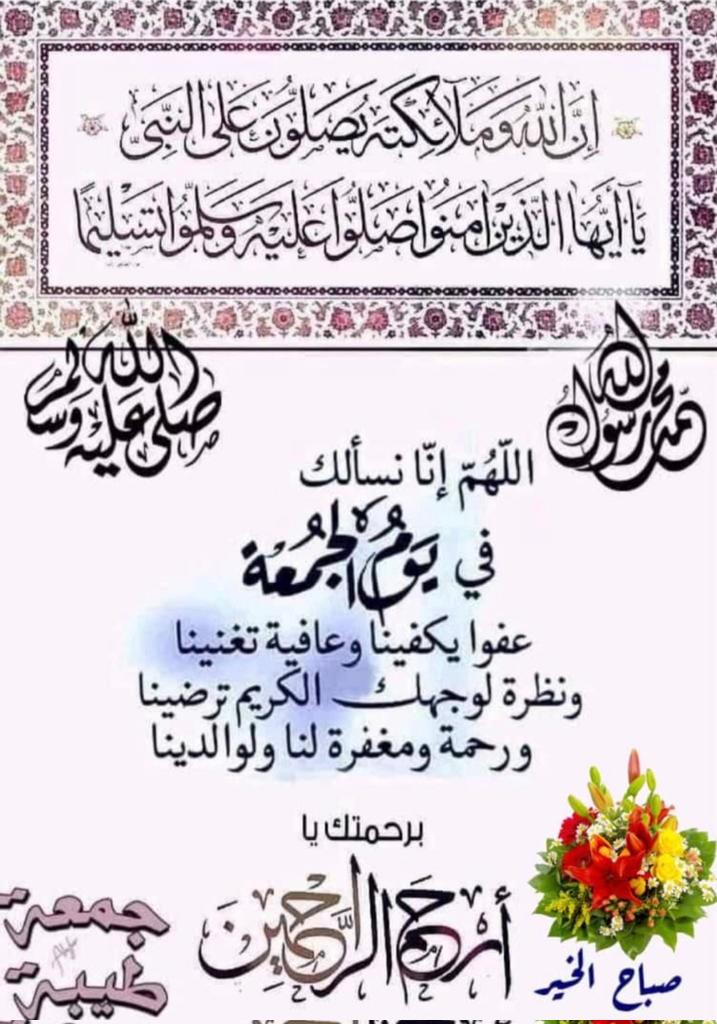 إِنَّ اللّٰهَ وَمَلَآئِكَتَهُ يُصَلُّونَ عَلَى النَّبِىِّ
يَآ أَيُّهَا الَّذِينَ اٰمَنُوا صَلُّوا عَلَيْهِ وَسَلِّمُوا تَسْلِيمًا
محمد رسول الله
صلى الله عليه وسلم
اللّهُمّ إنّا نسألك
في يَومُ الجُمُعة
عفوا يكفينا وعافية تغنينا
ونظرة لوجهك الكريم ترضينا
ورحمة ومغفرة لنا ولوالدينا
برحمتك يا
أرحم الرَّاحمين
جمعة
طيبة
صباح الخير